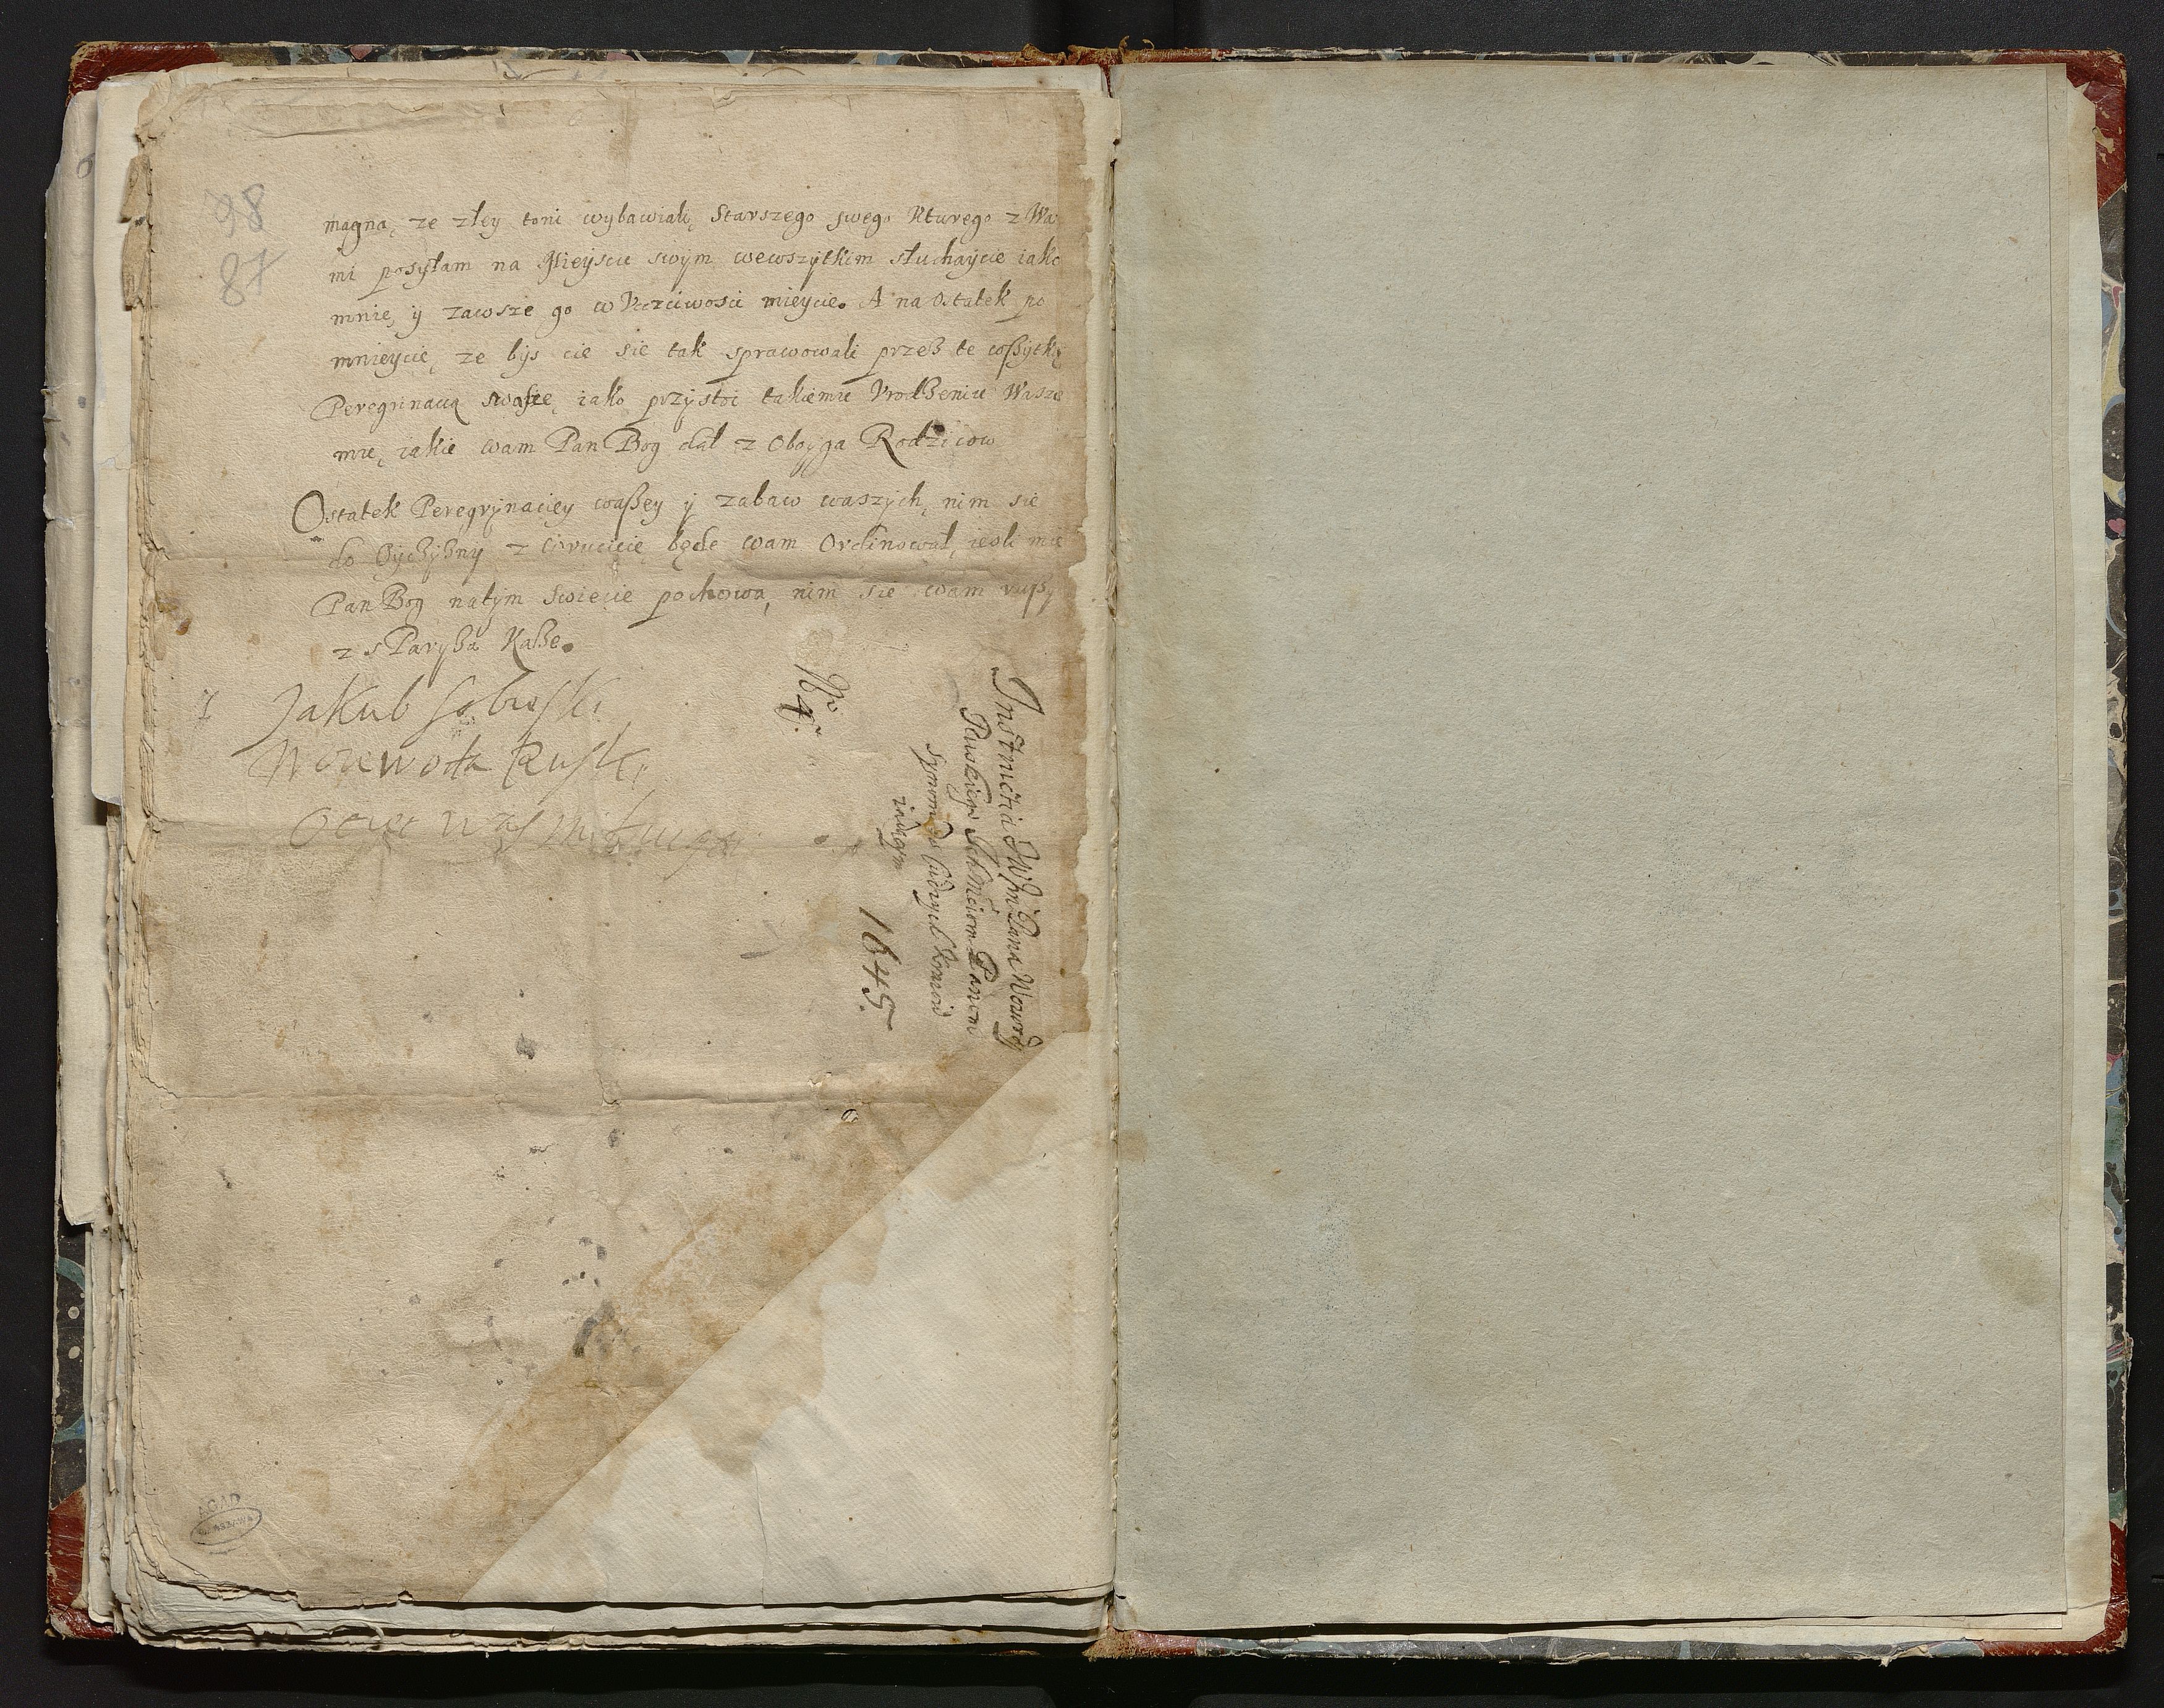 98
87
magna, ze złey toni wybawiali, Starszego swego Kturego z Wa
mi posyłam na Mieyscu swym wewszytkim słuchaycie iako
mnie, y zawsze go w Vczciwosci mieycie. A na Ostatek po
mnieycie, ze bys cie sie tak sprawowali przeß te wßytkę
Peregrinacią swoię, iako przystoi takiemu Vrodzeniu Wasze
mu, iakie wam Pan Bog dał z Oboyga Rodzicow
Ostatek Peregrynaciey waßey y zabaw waszych, nim sie
do Oyczyzny z wrucicie, będe wam Ordinował, iesli mie
Pan Bog natym swiecie pochowa, nim sie wam
z s Paryza Kaße.
Jakub Sobieski
Woiewoda Ruski
Ociec was miłuiący
No 4.
Instructia JMsci Pana Woiewody
Ruskiego Ich Mciom Panom
synom do cudzych Kraiow
iadącym
1645.
AGAD
WARSZAWA